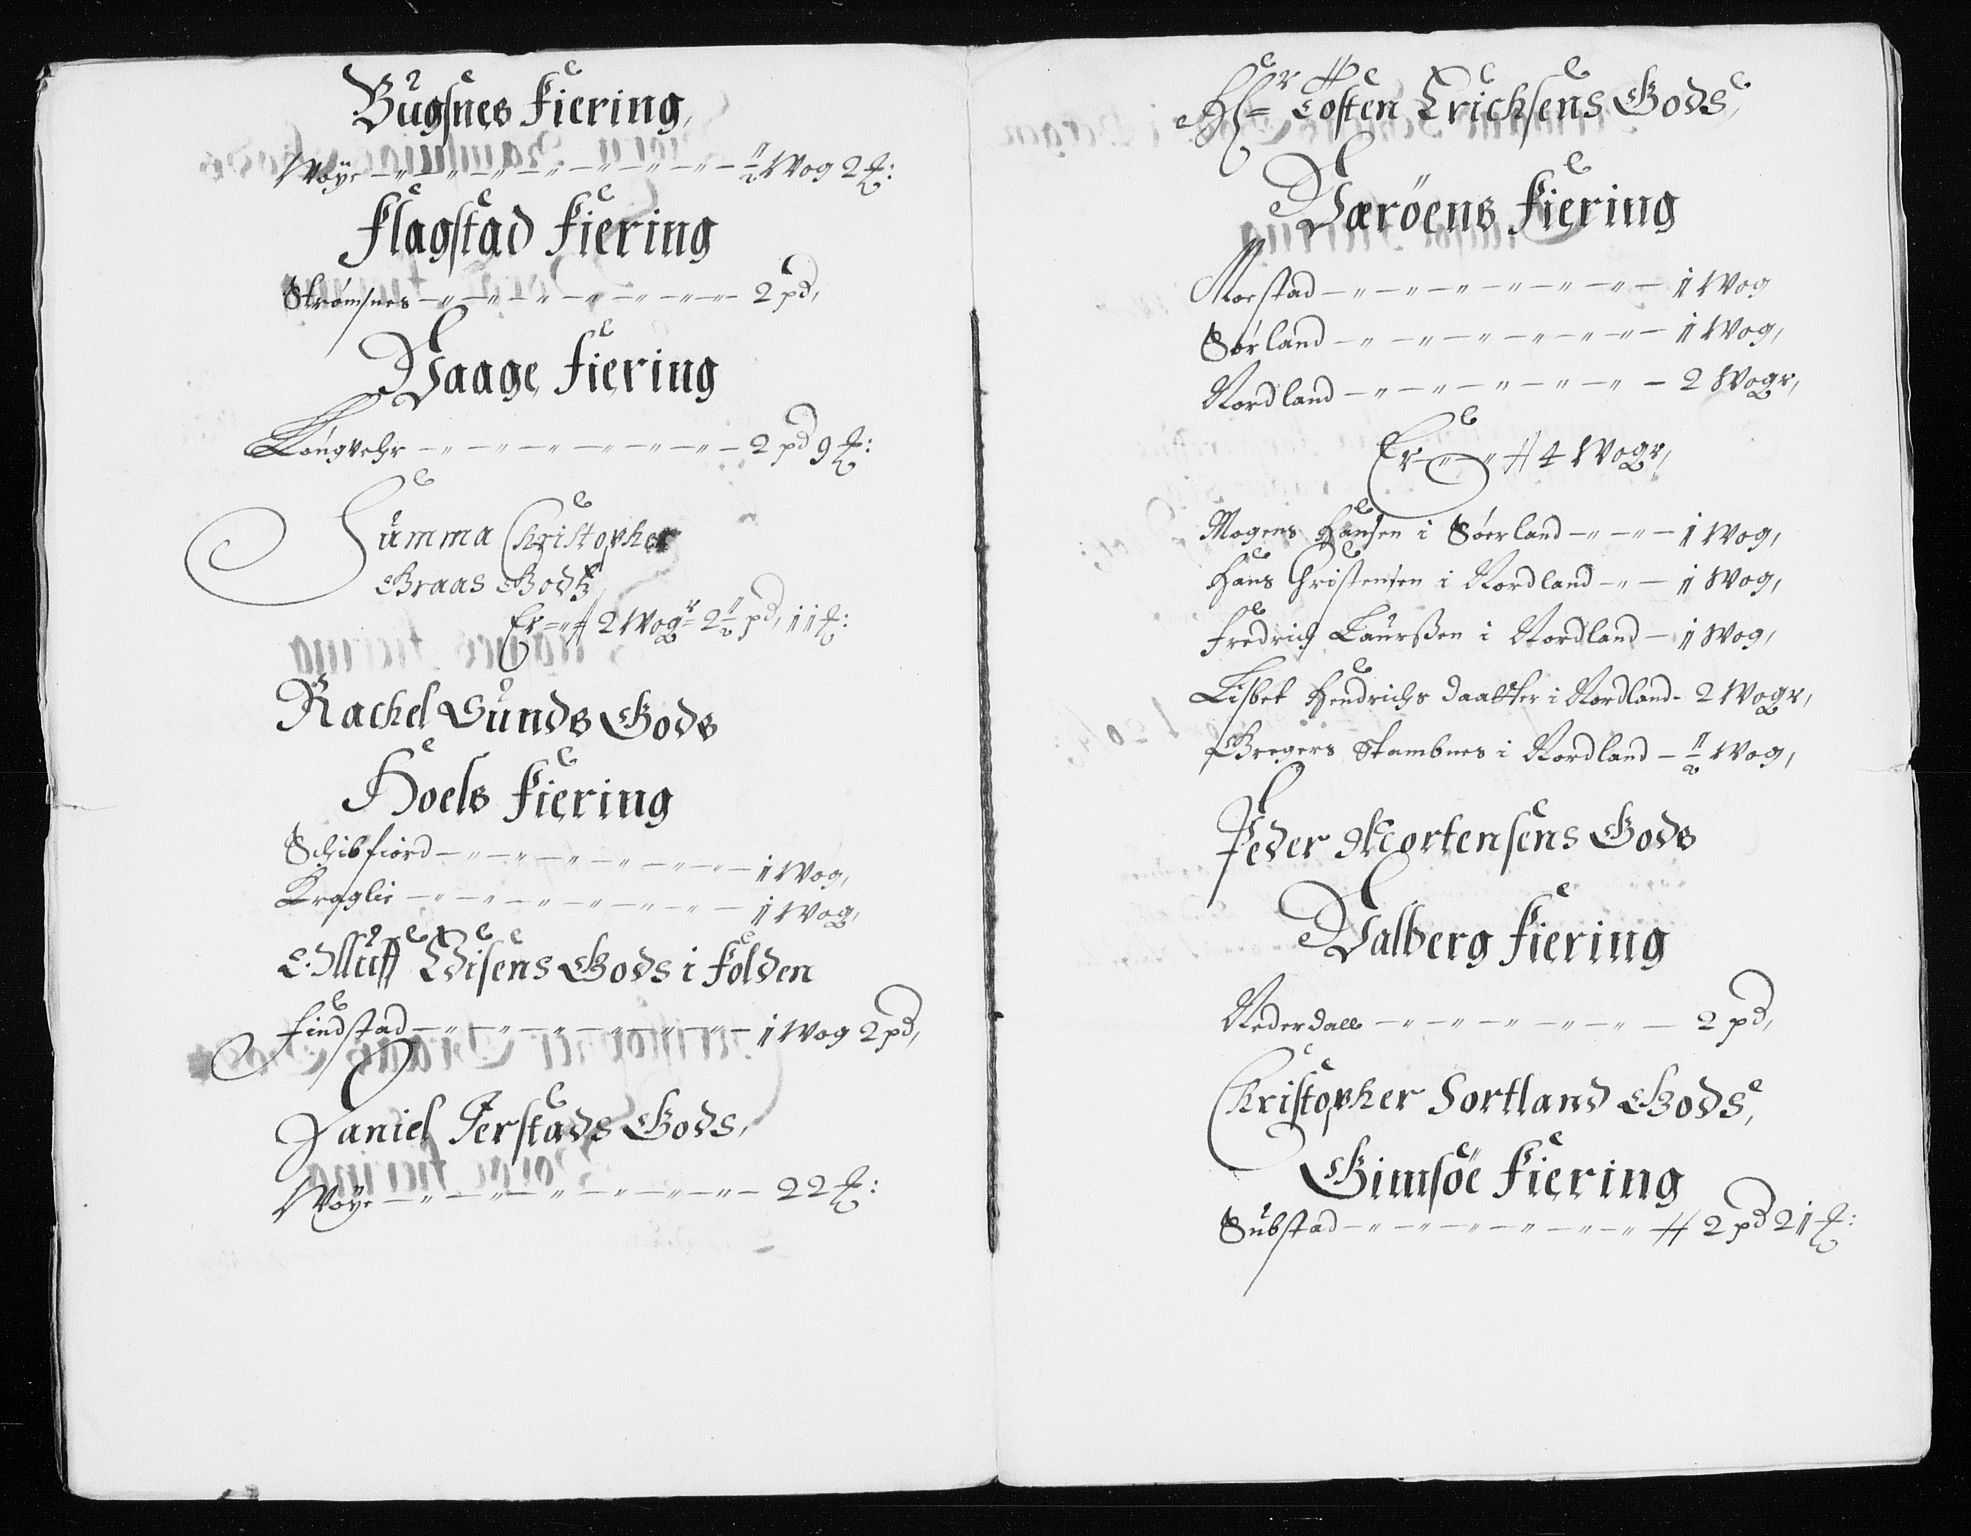 Bugsnes Fiering,
Wøye — „ — „ — „ — „ — „ — „ — ½ Wog 2 ℔:
Flagstad Fiering
Strømsnes — „ — „ — „ — „ — „ — „ — 2 pd,
Vaage Fiering
Kongvehr — „ — „ — „ — „ — „ — „ — 2 pd 9 ℔:
Summa Christopher
Graas Gods
Er — „ — 2 Wogr 2½ pd, 11 ℔:
Rachel Sunds Gods
Hoels Fiering
Schibfiord — „ — „ — „ — „ — „ — „ — 1 Wog,
Kraglie — „ — „ — „ — „ — „ — „ — 1 Wog,
E. Olluff Wisens Gods i Folden
Findstad — „ — „ — „ — „ — „ — „ — 1 Wog 2 pd,
Daniel Jerstads Gods,
Wøye — „ — „ — „ — „ — „ — „ — 22 ℔:
Hr Tosten Erichsens Gods,
Værøens Fiering
Moestad — „ — „ — „ — „ — „ — „ — 1 Wog
Sørland — „ — „ — „ — „ — „ — „ — 1 Wog,
Nordland — „ — „ — „ — „ — „ — 2 Wogr,
Er — „ — „ 4 Wogr,
Mogens Hansen i Søerland — „ — „ — 1 Wog,
Hans Christensen i Nordland — „ — 1 Wog,
Fredrich Laurssen i Nordland — 1 Wog,
Lisbet Hendrichs daatter i Nordland - 2 Wogr,
Gregers Stambnes i Nordland — ½ Wog,
Peder Mortensens Gods
Valberg Fiering
Nederdall — „ — „ — „ — „ — „ — 2 pd,
Christopher Sortland Gods,
Gimsøe Fiering
Substad — „ — „ — „ — „ — „ — „ — 2 pd 21 ℔: